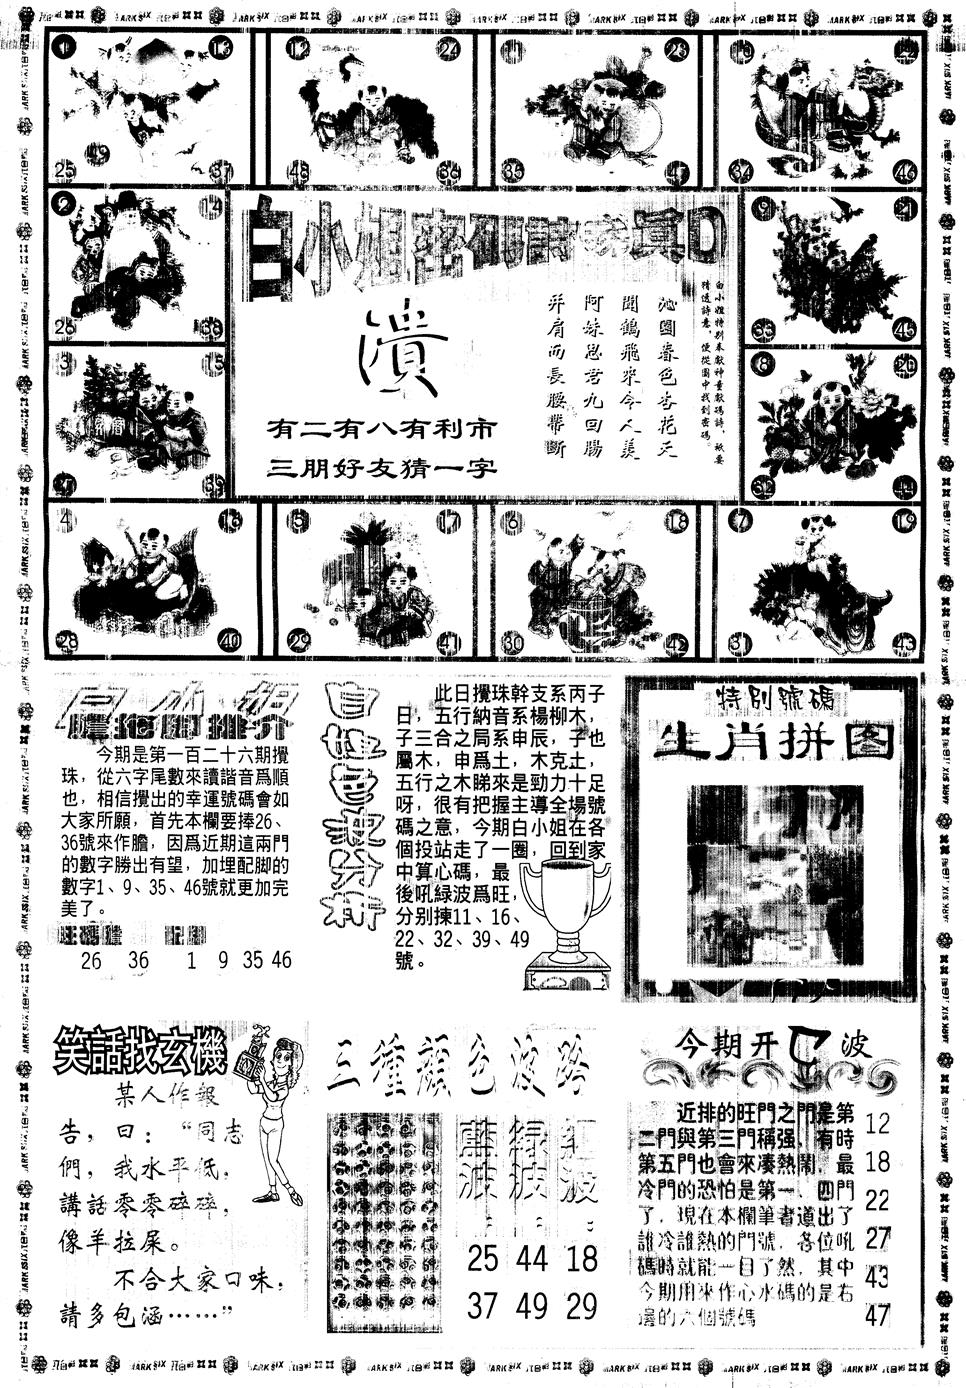 1 13 12 24 11 23 10 22
25 49 37 48 36 35 47 34 46
2 14 9 21
26 38 33 45
3 15 8 20
27 39 32 44
白小姐密碼詩
白小姐特别奉獻神童數碼詩，祇要
猜透詩意，便從圖中找到密碼。
沁園春色杏花天
聞鶴飛來令人美
阿妹思君九回腸
并肩而長腰帶斷
潰
有二有八有利市
三朋好友猜一字
4 16 5 17 6 18 7 19
28 40 29 41 30 42 31 43
白小姐
今期是第一百二十六期攪
珠，從六字尾數來讀諧音爲順
也，相信攪出的幸運號碼會如
大家所願，首先本欄要捧26、
36號來作膽，因爲近期這兩門
的數字勝出有望，加埋配脚的
數字1、9、35、46號就更加完
美了。
26 36 1 9 35 46
此日攪珠幹支系丙子
日，五行納音系楊柳木，
子三合之局系申辰，子也
屬木，申爲土，木克土，
五行之木睇來是勁力十足
呀，很有把握主導全場號
碼之意，今期白小姐在各
個投站走了一圈，回到家
中算心碼，最
後吼緑波爲旺，
分别揀11、16、
22、32、39、49
號。
特别號碼
生肖拼圖
笑話找玄機
某人作報
告，曰：“同志
們，我水平低，
講話零零碎碎，
像羊拉屎。
不合大家口味，
請多包涵……”
三種顔色波路
藍波： 緑波： 紅波：
25 44 18
37 49 29
今期开 波
近排的旺門之門是第
二門與第三門稱强，有時
第五門也會來凑熱鬧，最
冷門的恐怕是第一、四門
了，現在本欄筆者道出了
誰冷誰熱的門號，各位吼
碼時就能一目了然，其中
今期用來作心水碼的是右
邊的六個號碼
12
18
22
27
43
47